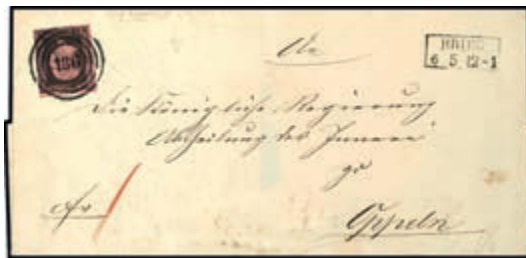 An
BRIEG
6 5 12-1
186
die Königliche Regierung
Abtheilung des Innern
zu
Oppeln